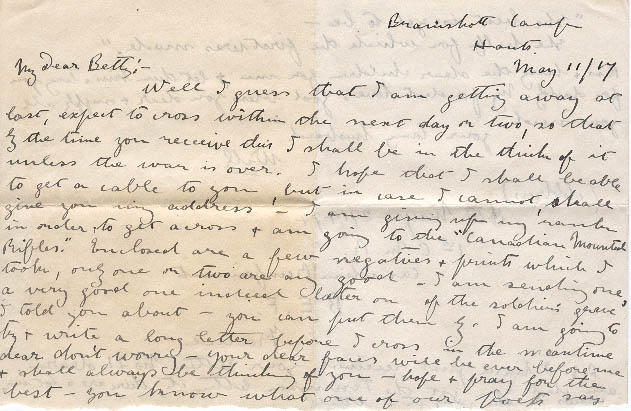 Bramshott Camp
Hants.
May 11/17
My dear Betty:-
Well I guess that I am getting away at
last, expect to cross within the next day or two, so that
by the time you receive this I shall be in the thick of it
unless the war is over. I hope that I shall be able
to get a cable to you, but in case I cannot, shall
give you my address! - I am giving up my rank
in order to get across & am going to the "Canadian Mounted
Rifles." Enclosed are a few negatives & prints which I
took, only one or two are any good - I am sending one
a very good one indeed later on of the soldiers' graves
I told you about - you can put them by. I am going to
try & write a long letter before I cross, in the meantime
dear don't worry - your dear faces will be ever before me
& shall always be thinking of you - hope & pray for the
best - you know what one of our poets says